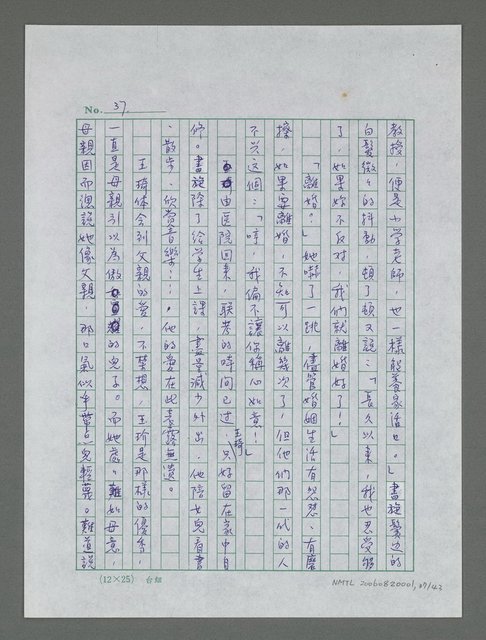 No. 37
教授,便是小学老師,也一樣能養家活口。」盡旋鬢边的
白髮微々的抖動,頓了頓又說:「長久以來,我也忍受够
了,如果妳不反対,我們就離婚好了!」
「離婚?」她嚇了一跳,儘管婚姻生活有怨懟、有磨
擦,如果要離婚,不知可以離幾次了,但他們那一代的人
不兴这個:「哼,我偏不讓你稱心如意!」
由医院回來,联考的時间已过,王琦只好留在家中自
修。盡旋除了给学生上課,盡量減少外出,他陪女兒看書
、散步、欣賞音樂……。他的爱在此表露無遺。
王琦体会到父親的爱,不禁想,王瑜是那樣的優秀,
一直是母親引以為傲的兒子。而她處々難如母意,
母親因而偲說她像父親,那口氣似乎葉忠兒輕蔑。難道說
(12×25) 台烟
NMTL 20060820001,37/43